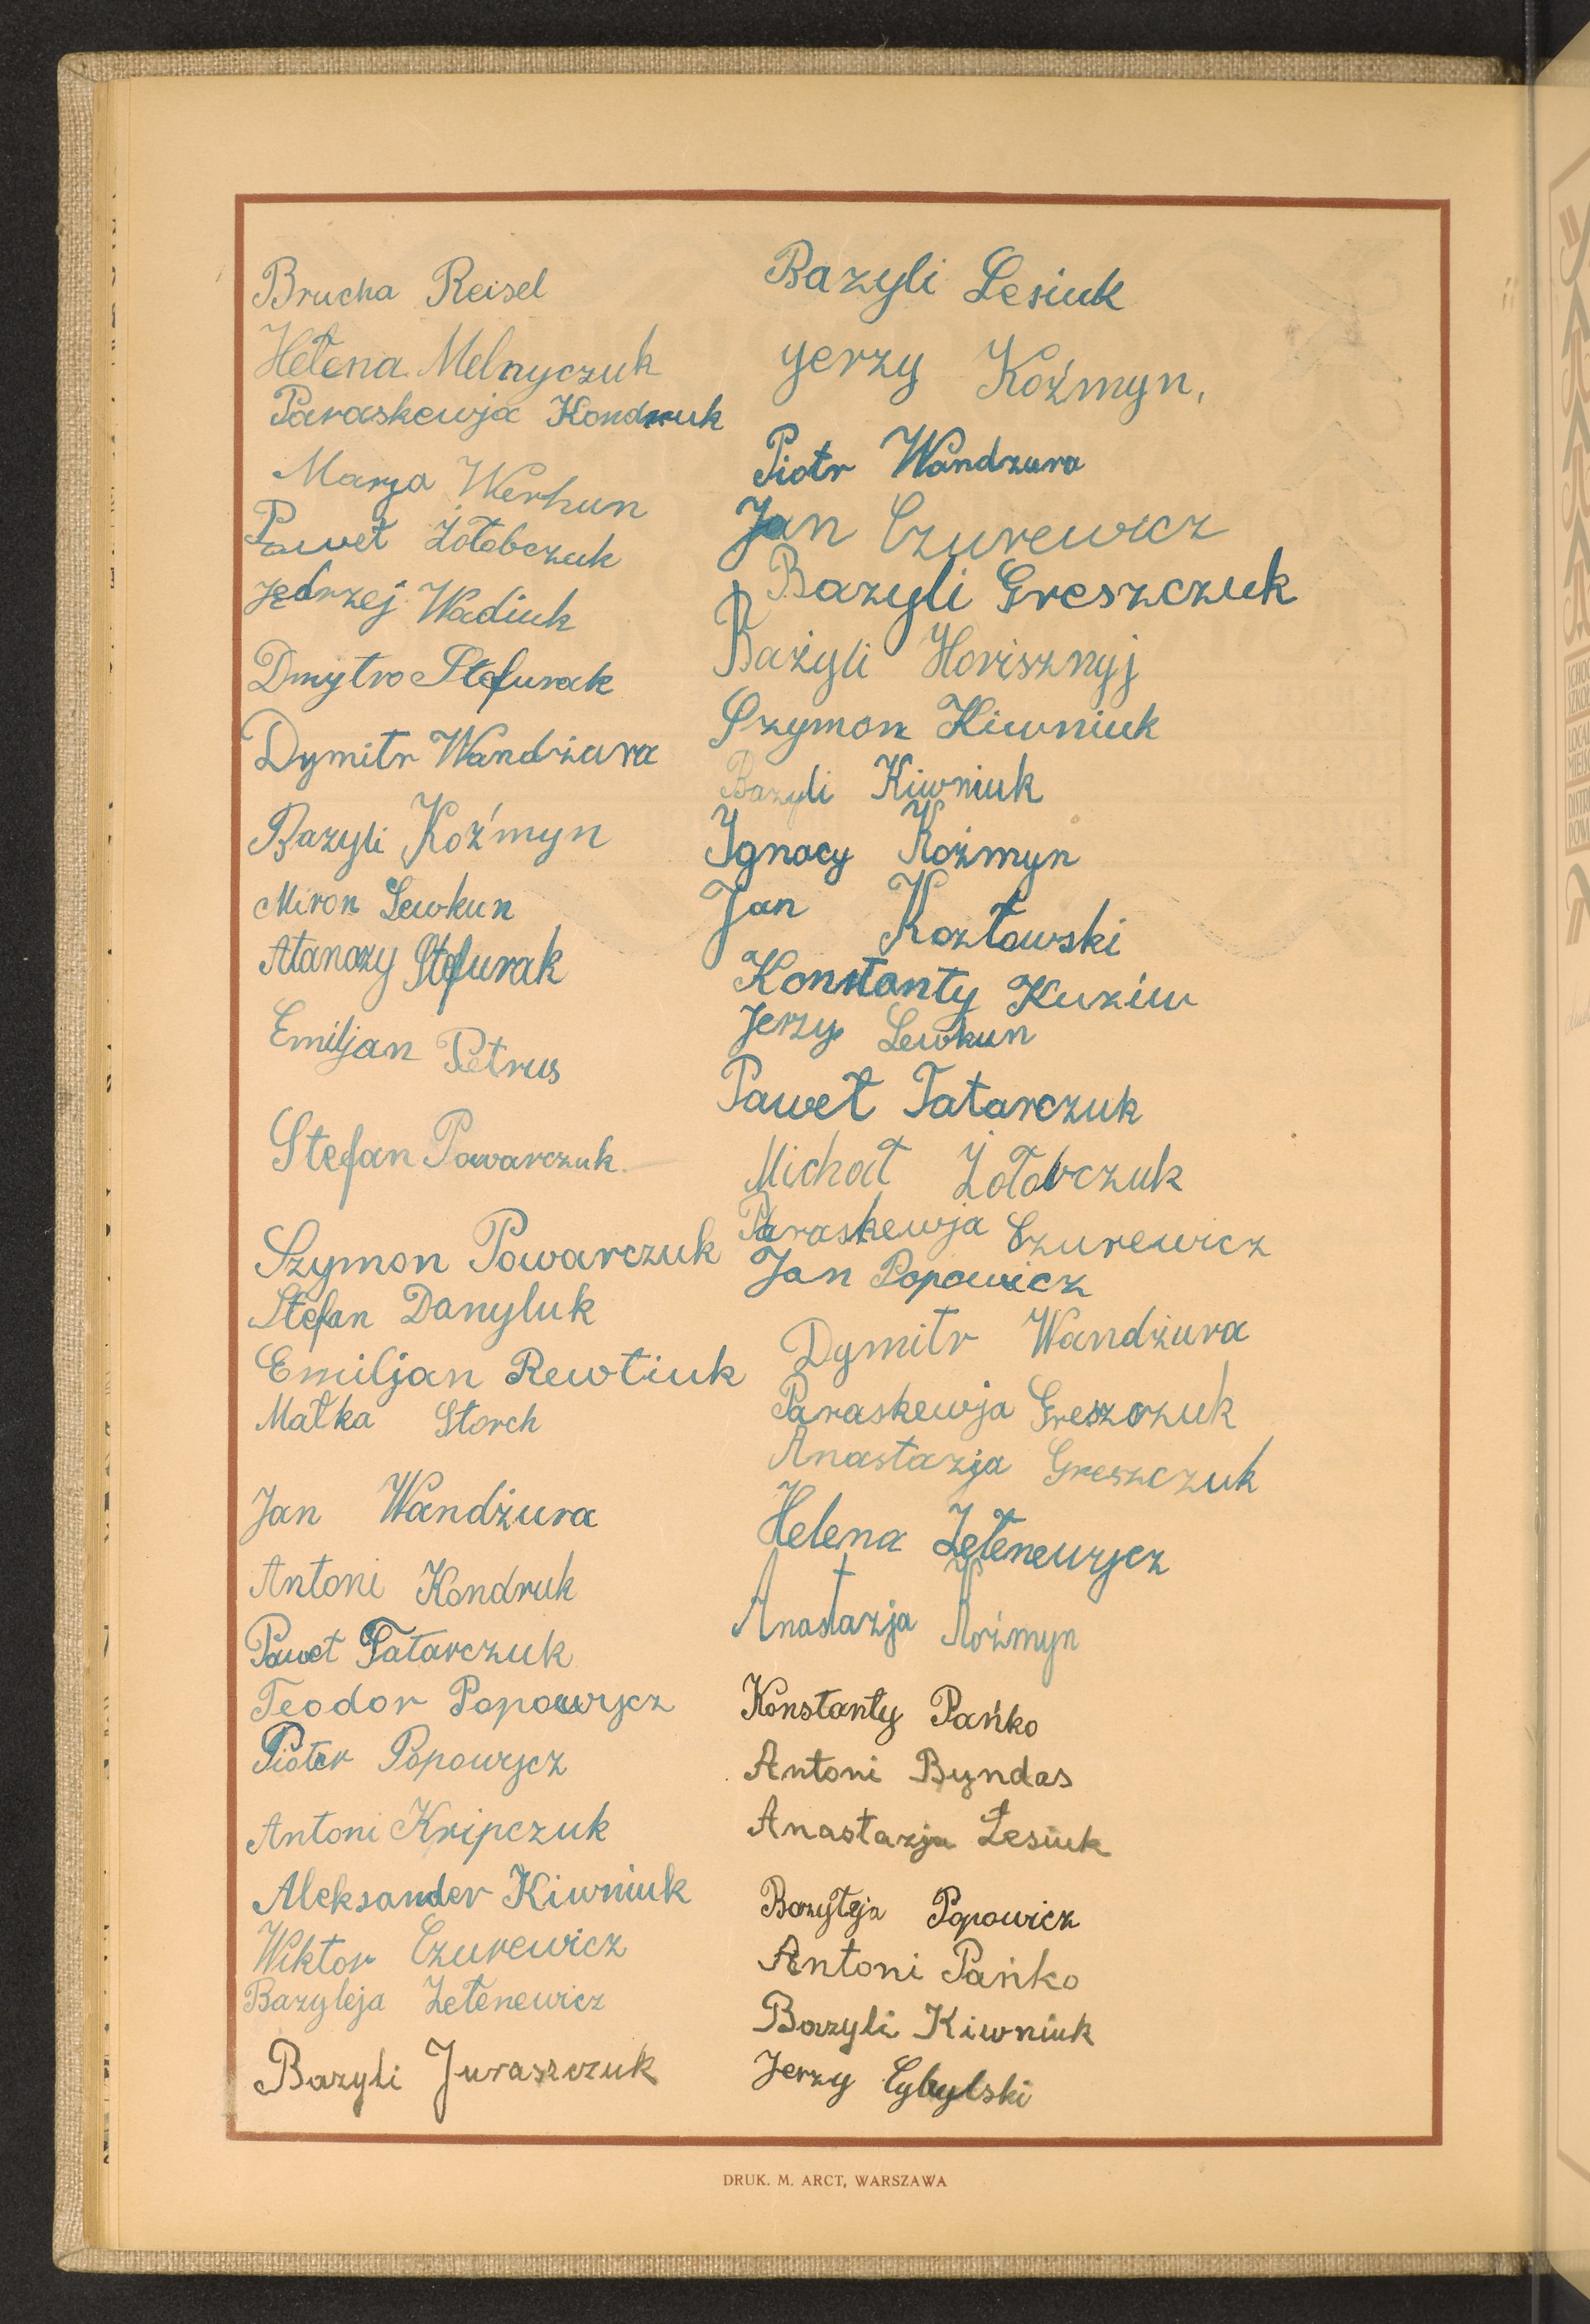 Brucha Reisel
Hełena Melnyczuk
Paraskewja Kondruk
Marja Werhun
Paweł Żołobczuk
Jędrzej Wadiuk
Dmytro Stefurak
Dymitr Wandżura
Bazyli Koźmyn
Miron Lewkun
Atanazy Stefurak
Emiljan Petrus
Stefan Powarczuk
Szymon Powarczuk
Stefan Danyluk
Emiljan Rewtiuk
Małka Storch
Jan Wandżura
Antoni Kondruk
Paweł Tatarczuk
Teodor Popowycz
Pioter Popowycz
Antoni Kripczuk
Aleksander Kiwniuk
Wiktor Czurewicz
Bazyleja Zełenewicz
Bazyli Juraszczuk
Bazyli Lesiuk
Jerzy Koźmyn,
Piotr Wandzura
Jan Czurewicz
Bazyli Greszczuk
Bażyli Horisznyj
Szymon Kiwniuk
Bazyli Kiwniuk
Ignacy Koźmyn
Jan Kozłowski
Konstanty Kuziw
Jerzy Lewkun
Paweł Tatarczuk
Michał Żołobczuk
Paraskewja Czurewicz
Jan Popowicz
Dymitr Wandżura
Paraskewja Greszczuk
Anastazja Greszczuk
Helena Zełenewycz
Anastazja Koźmyn
Konstanty Pańko
Antoni Byndas
Anastazja Łesiuk
Bazyłeja Popowicz
Antoni Pańko
Bazyli Kiwniuk
Jerzy Cybylski
DRUK. M. ARCT, WARSZAWA